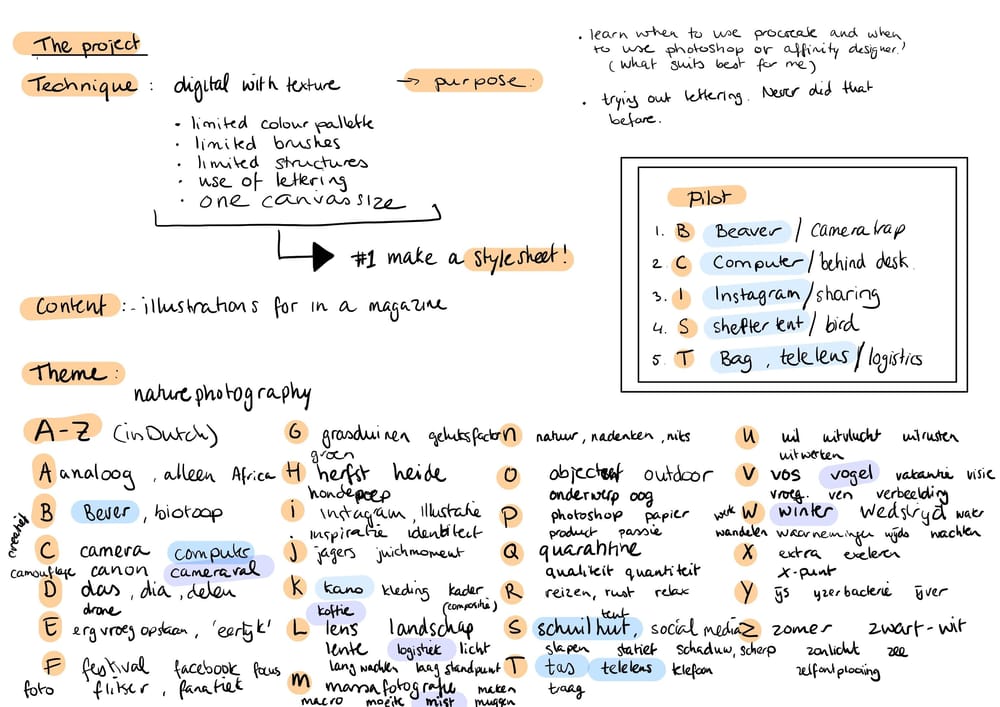 The project
Technique : digital with texture → purpose :
• limited colour pallette
• limited brushes
• limited structures
• use of lettering
• one canvas size
#1 make a stylesheet!
Content :- illustrations for in a magazine
Theme :
nature photography
• learn when to use procreate and when
to use photoshop or affinity designer!
(what suits best for me)
• trying out lettering. Never did that
before.
Pilot
1. B Beaver / camera trap
2. C Computer / behind desk.
3. I Instagram / sharing
4. S shelter tent / bird
5. T Bag, telelens / logistics
A-Z (in Dutch)
A analoog, alleen Africa
B Bever, biotoop
creatief
C camera computer
camouflage canon cameraval
D das, dia, delen
drone
E erg vroeg opstaan, 'eerlijk'
F festival facebook focus
foto flitser, fanatiek
G grasduinen geluksfactor
groen
H herfst heide
hondepoep
i instagram, illustratie
inspiratie identiteit
j jagers juichmoment
K kano kleding kader
koffie (compositie)
L lens landschap
lente logistiek licht
lang wachten laag standpunt
m massafotografie maken
macro moeite mist muggen
n natuur, nadenken, niks
O objectief outdoor
onderwerp oog
P photoshop papier
product passie
Q quarantine
qualiteit quantiteit
R reizen, rust relax
S schuilhut, tent social media
slapen statief schaduw, scherp
T tas telelens telefoon
traag
U uil uitvlucht uitrusten
uitwerken
V vos vogel vakantie visie
vroeg. ven verbeelding
werk W winter wedstryd water
wandelen waarnemingen wachten
X extra exeleren
x-punt
Y ijs yzerbacterie ijver
Z zomer zwart-wit
zonlicht zee
zelfontplooiing